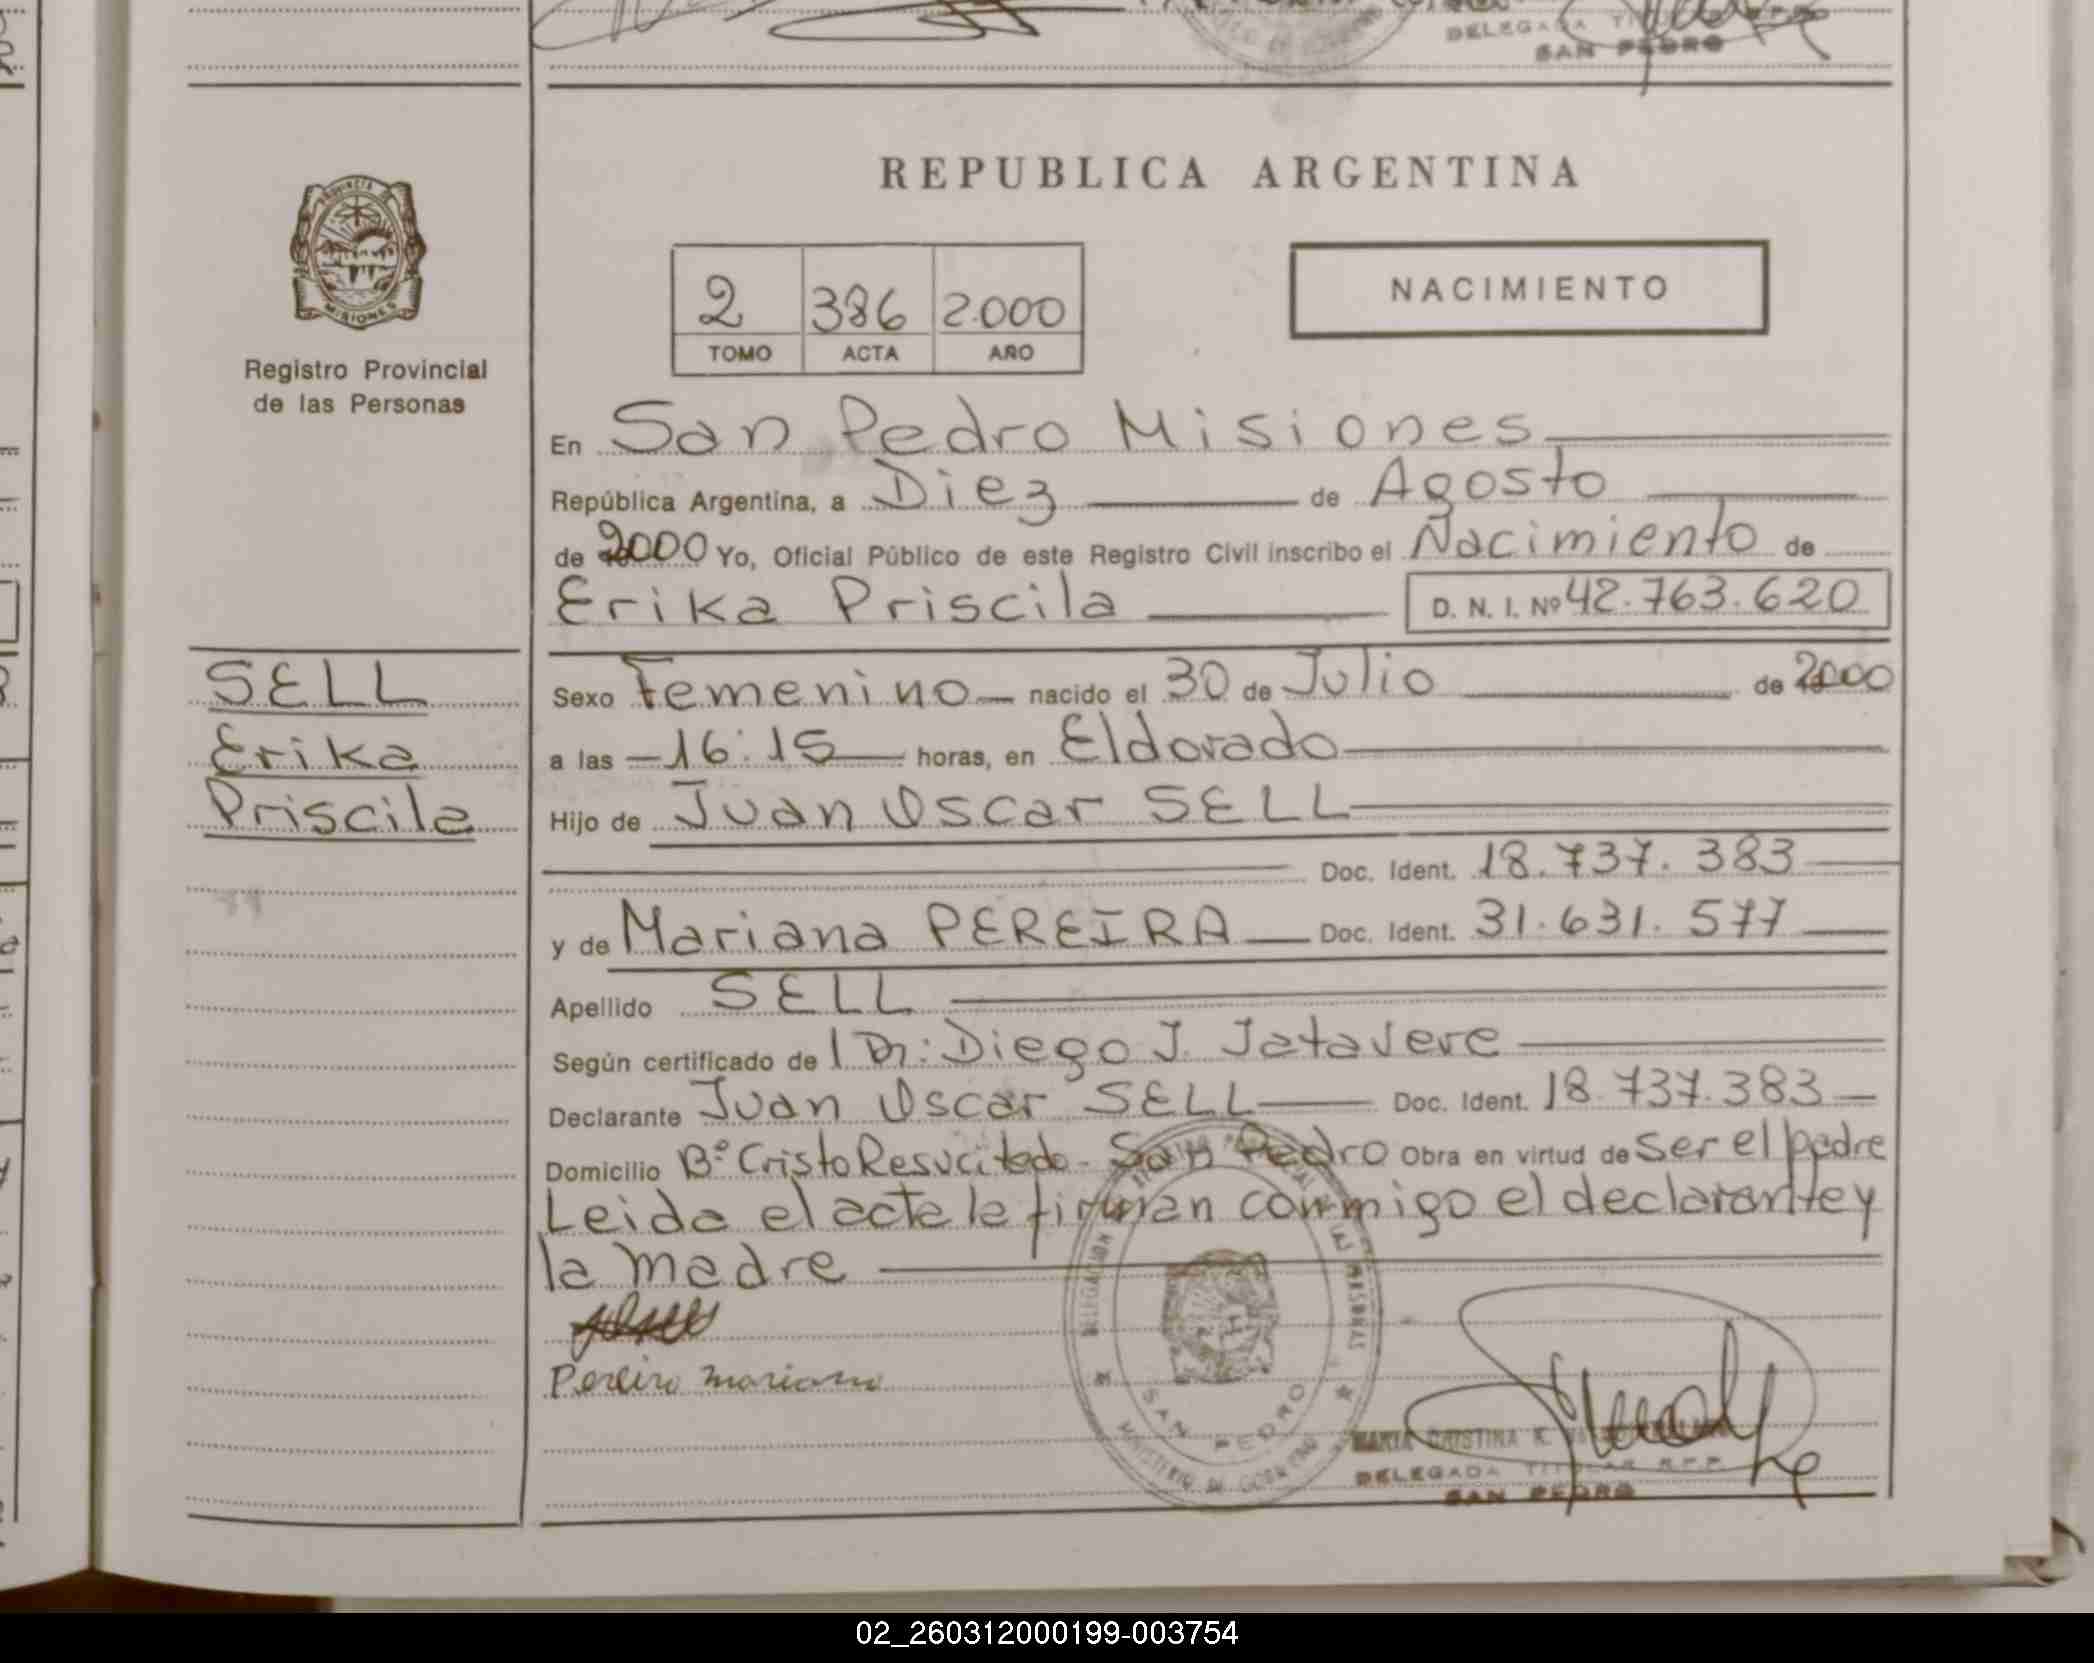 DELEGADA
SAN PEDRO
REPUBLICA ARGENTINA
PROVINCIA DE
MISIONES
Registro Provincial
de las Personas
2 386 2.000
TOMO ACTA AÑO
NACIMIENTO
En San Pedro Misiones
República Argentina, a Diez de Agosto
de 2000 Yo, Oficial Público de este Registro Civil inscribo el Nacimiento de
Erika Priscila D. N. I. Nº 42.763.620
SELL
Erika
Priscila
Sexo Femenino nacido el 30 de Julio de 2000
a las 16:15 horas, en Eldorado
Hijo de Juan Oscar SELL
Doc. Ident. 18.737.383
y de Mariana PEREIRA Doc. Ident. 31.631.577
Apellido SELL
Según certificado de Dr: Diego J. Jatavere
Declarante Juan Oscar SELL Doc. Ident. 18.737.383
Domicilio Bº Cristo Resucitado - San Pedro Obra en virtud de Ser el padre
Leida el acta la firman conmigo el declarante y
la madre
Pereira mariana
DELEGACION REGISTRO PROVINCIAL DE LAS PERSONAS
SAN PEDRO
MINISTERIO DE GOBIERNO
MARIA CRISTINA K.
DELEGADA TITULAR R.P.P.
SAN PEDRO
02_260312000199-003754